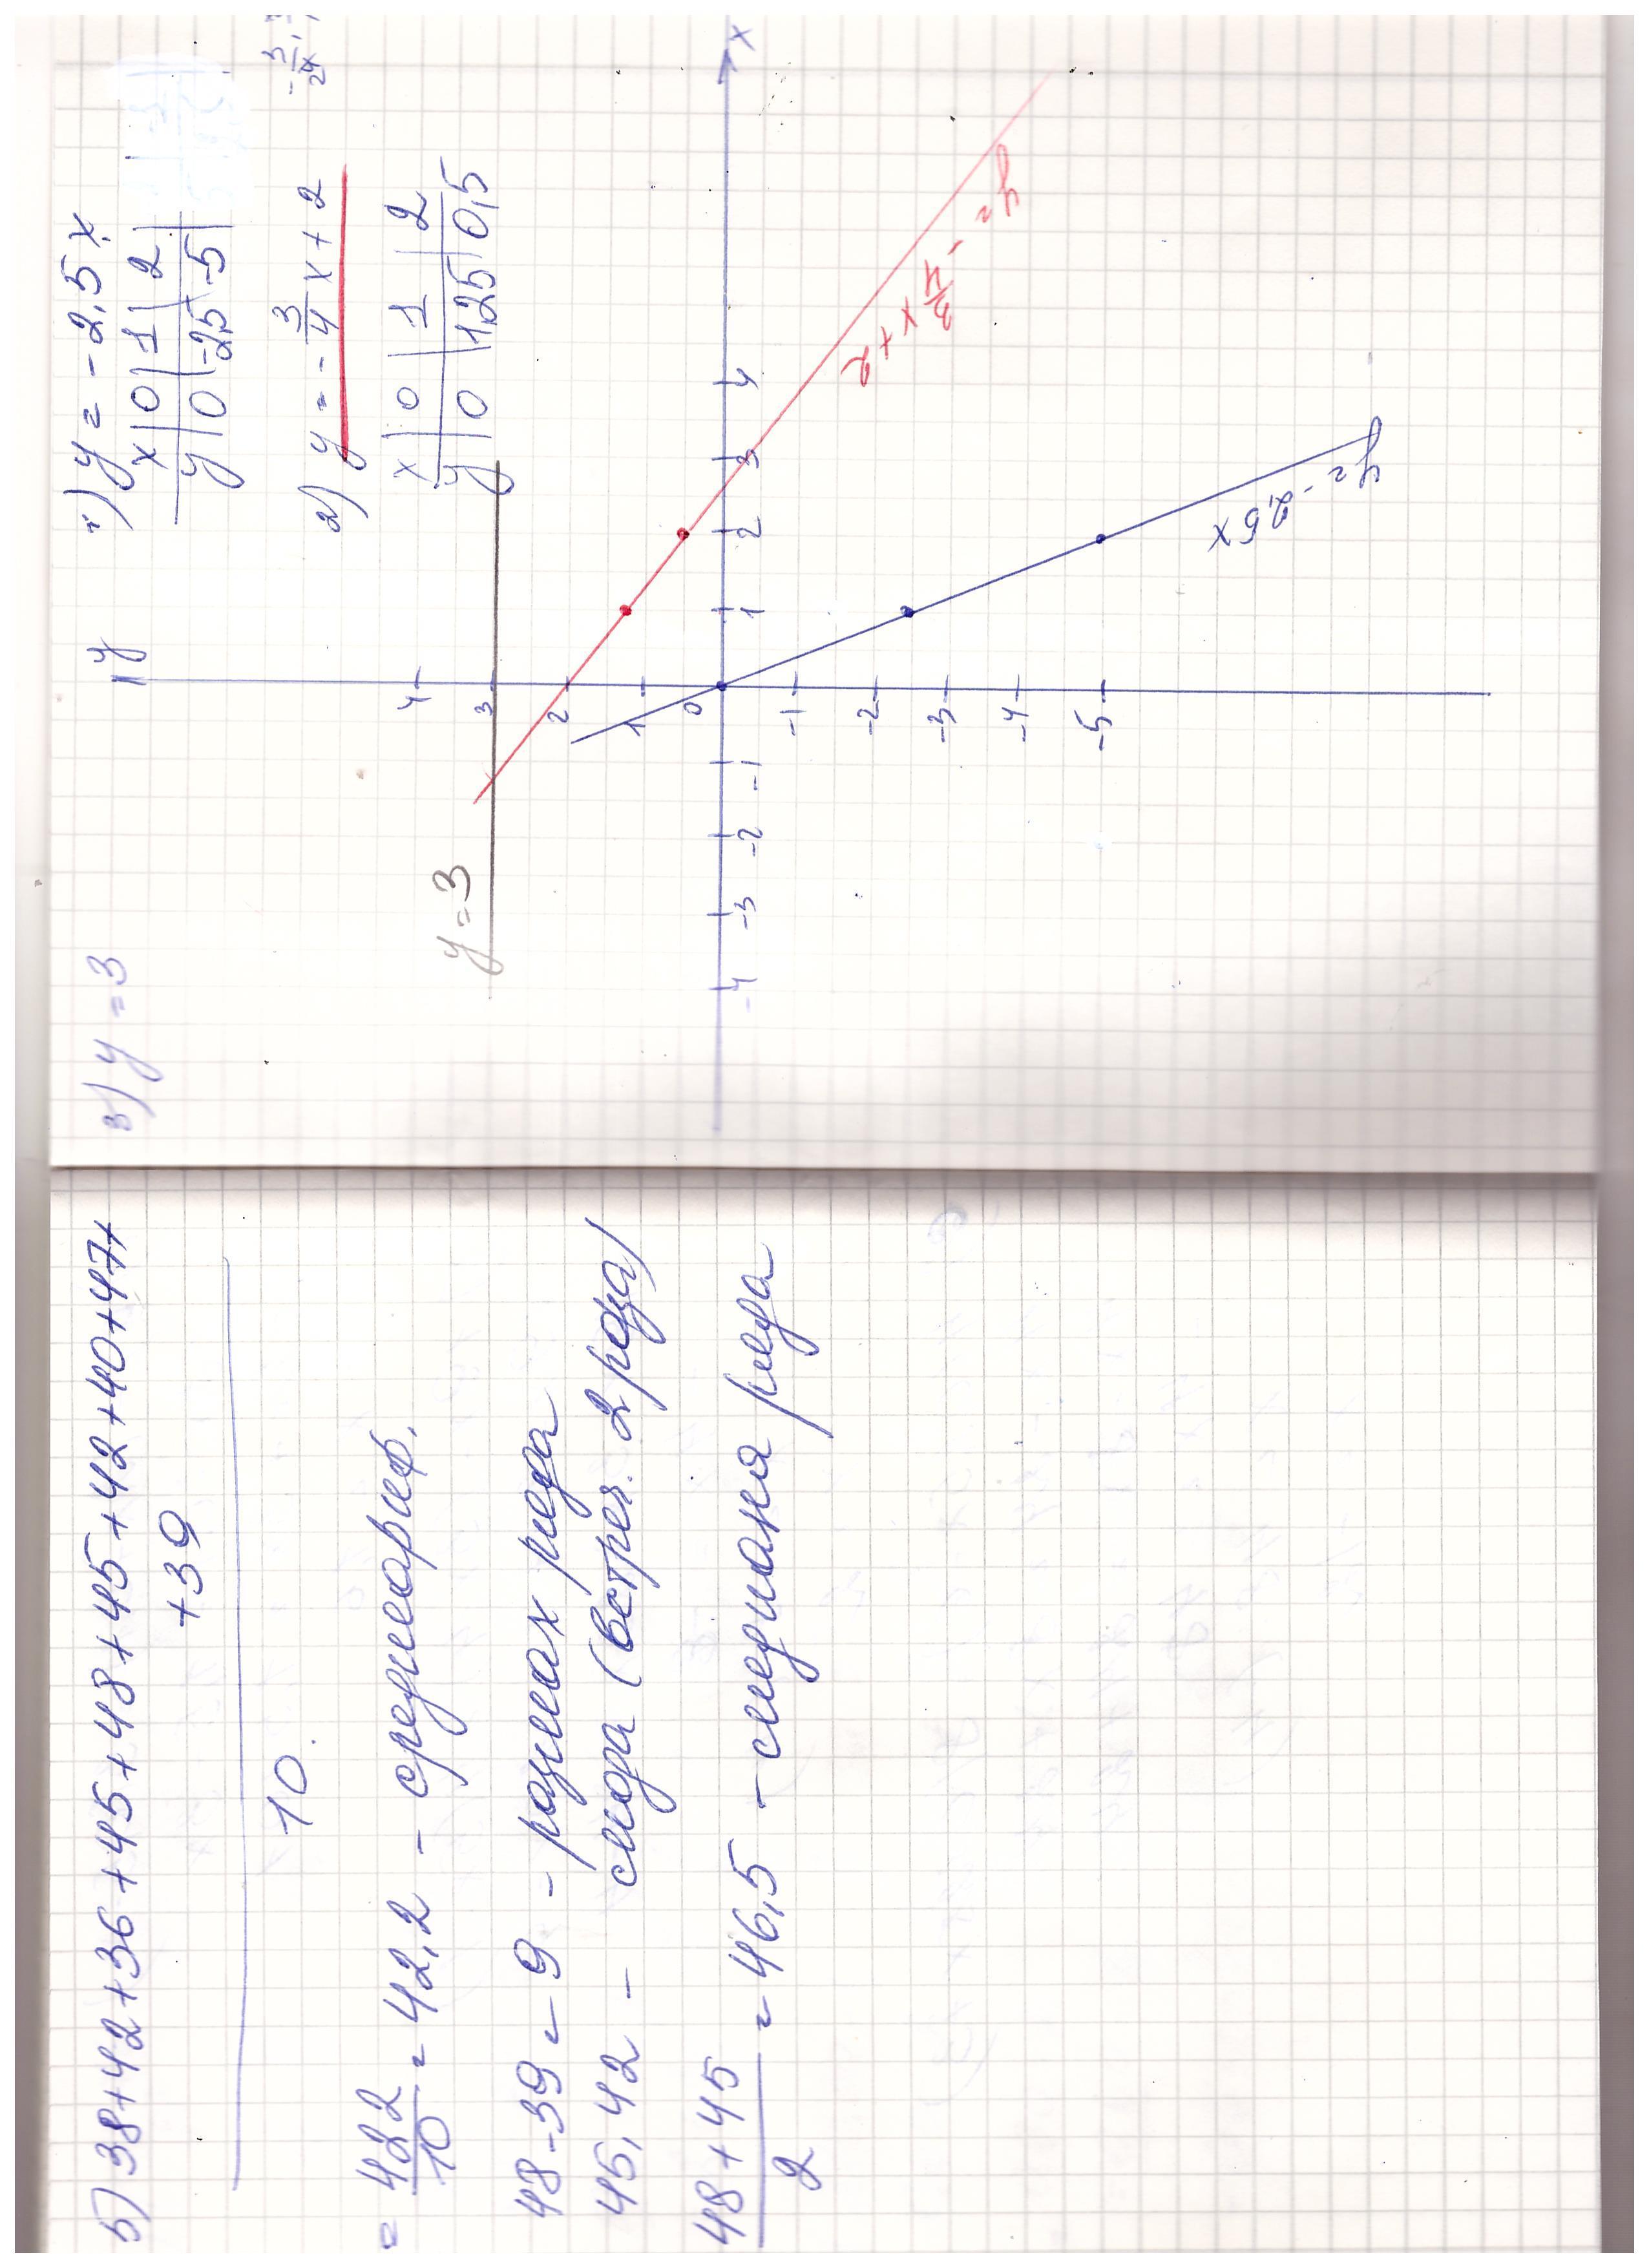 5) 38+42+36+45+48+45+42+40+47+
+39
10.
= 422/10 = 42,2 - среднеариф.
48-39 = 9 - размах ряда
45,42 - мода (встреч. 2 раза)
48+45/2 = 46,5 - медиана ряда
3) y = 3
1) y = -2,5x
x 0 1 2
y 0 -2,5 -5
2) y = -3/4 x + 2
x 0 1 2
y 0 1,25 0,5
y
y = 3
4
3
2
1
0
-4 -3 -2 -1 1 2 3 4 x
-1
-2
-3
-4
-5
y = -3/4 x + 2
y = -2,5x